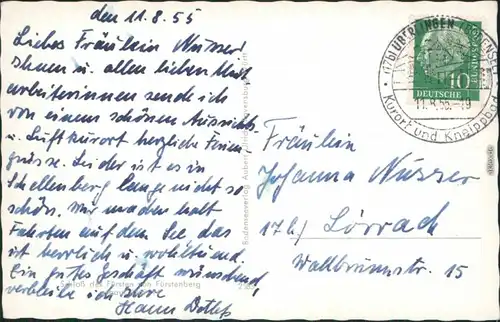 den 11.8.55
Liebes Fräulein Nusser
Ihnen u. allen lieben Mit
arbeiterinnen sende ich
von einem schönen Aussichts
u. Luftkurort herzliche Ferien
grüsse. Leider ist es in
Schellenberg lange nicht so
schön. Wir machen halt
Fahrten auf dem See das
ist herrlich u. wohltuend.
Ein gutes Geschäft wünschend,
verbleibe ich Ihre
Schloß des Fürsten von Fürstenberg
(17b) ÜBERLINGEN
11.8.55
Kurort und Kneippbad
10
DEUTSCHE
Fräulein
Johanna Nusser
17b/ Lörrach
Wallbrunnstr. 15